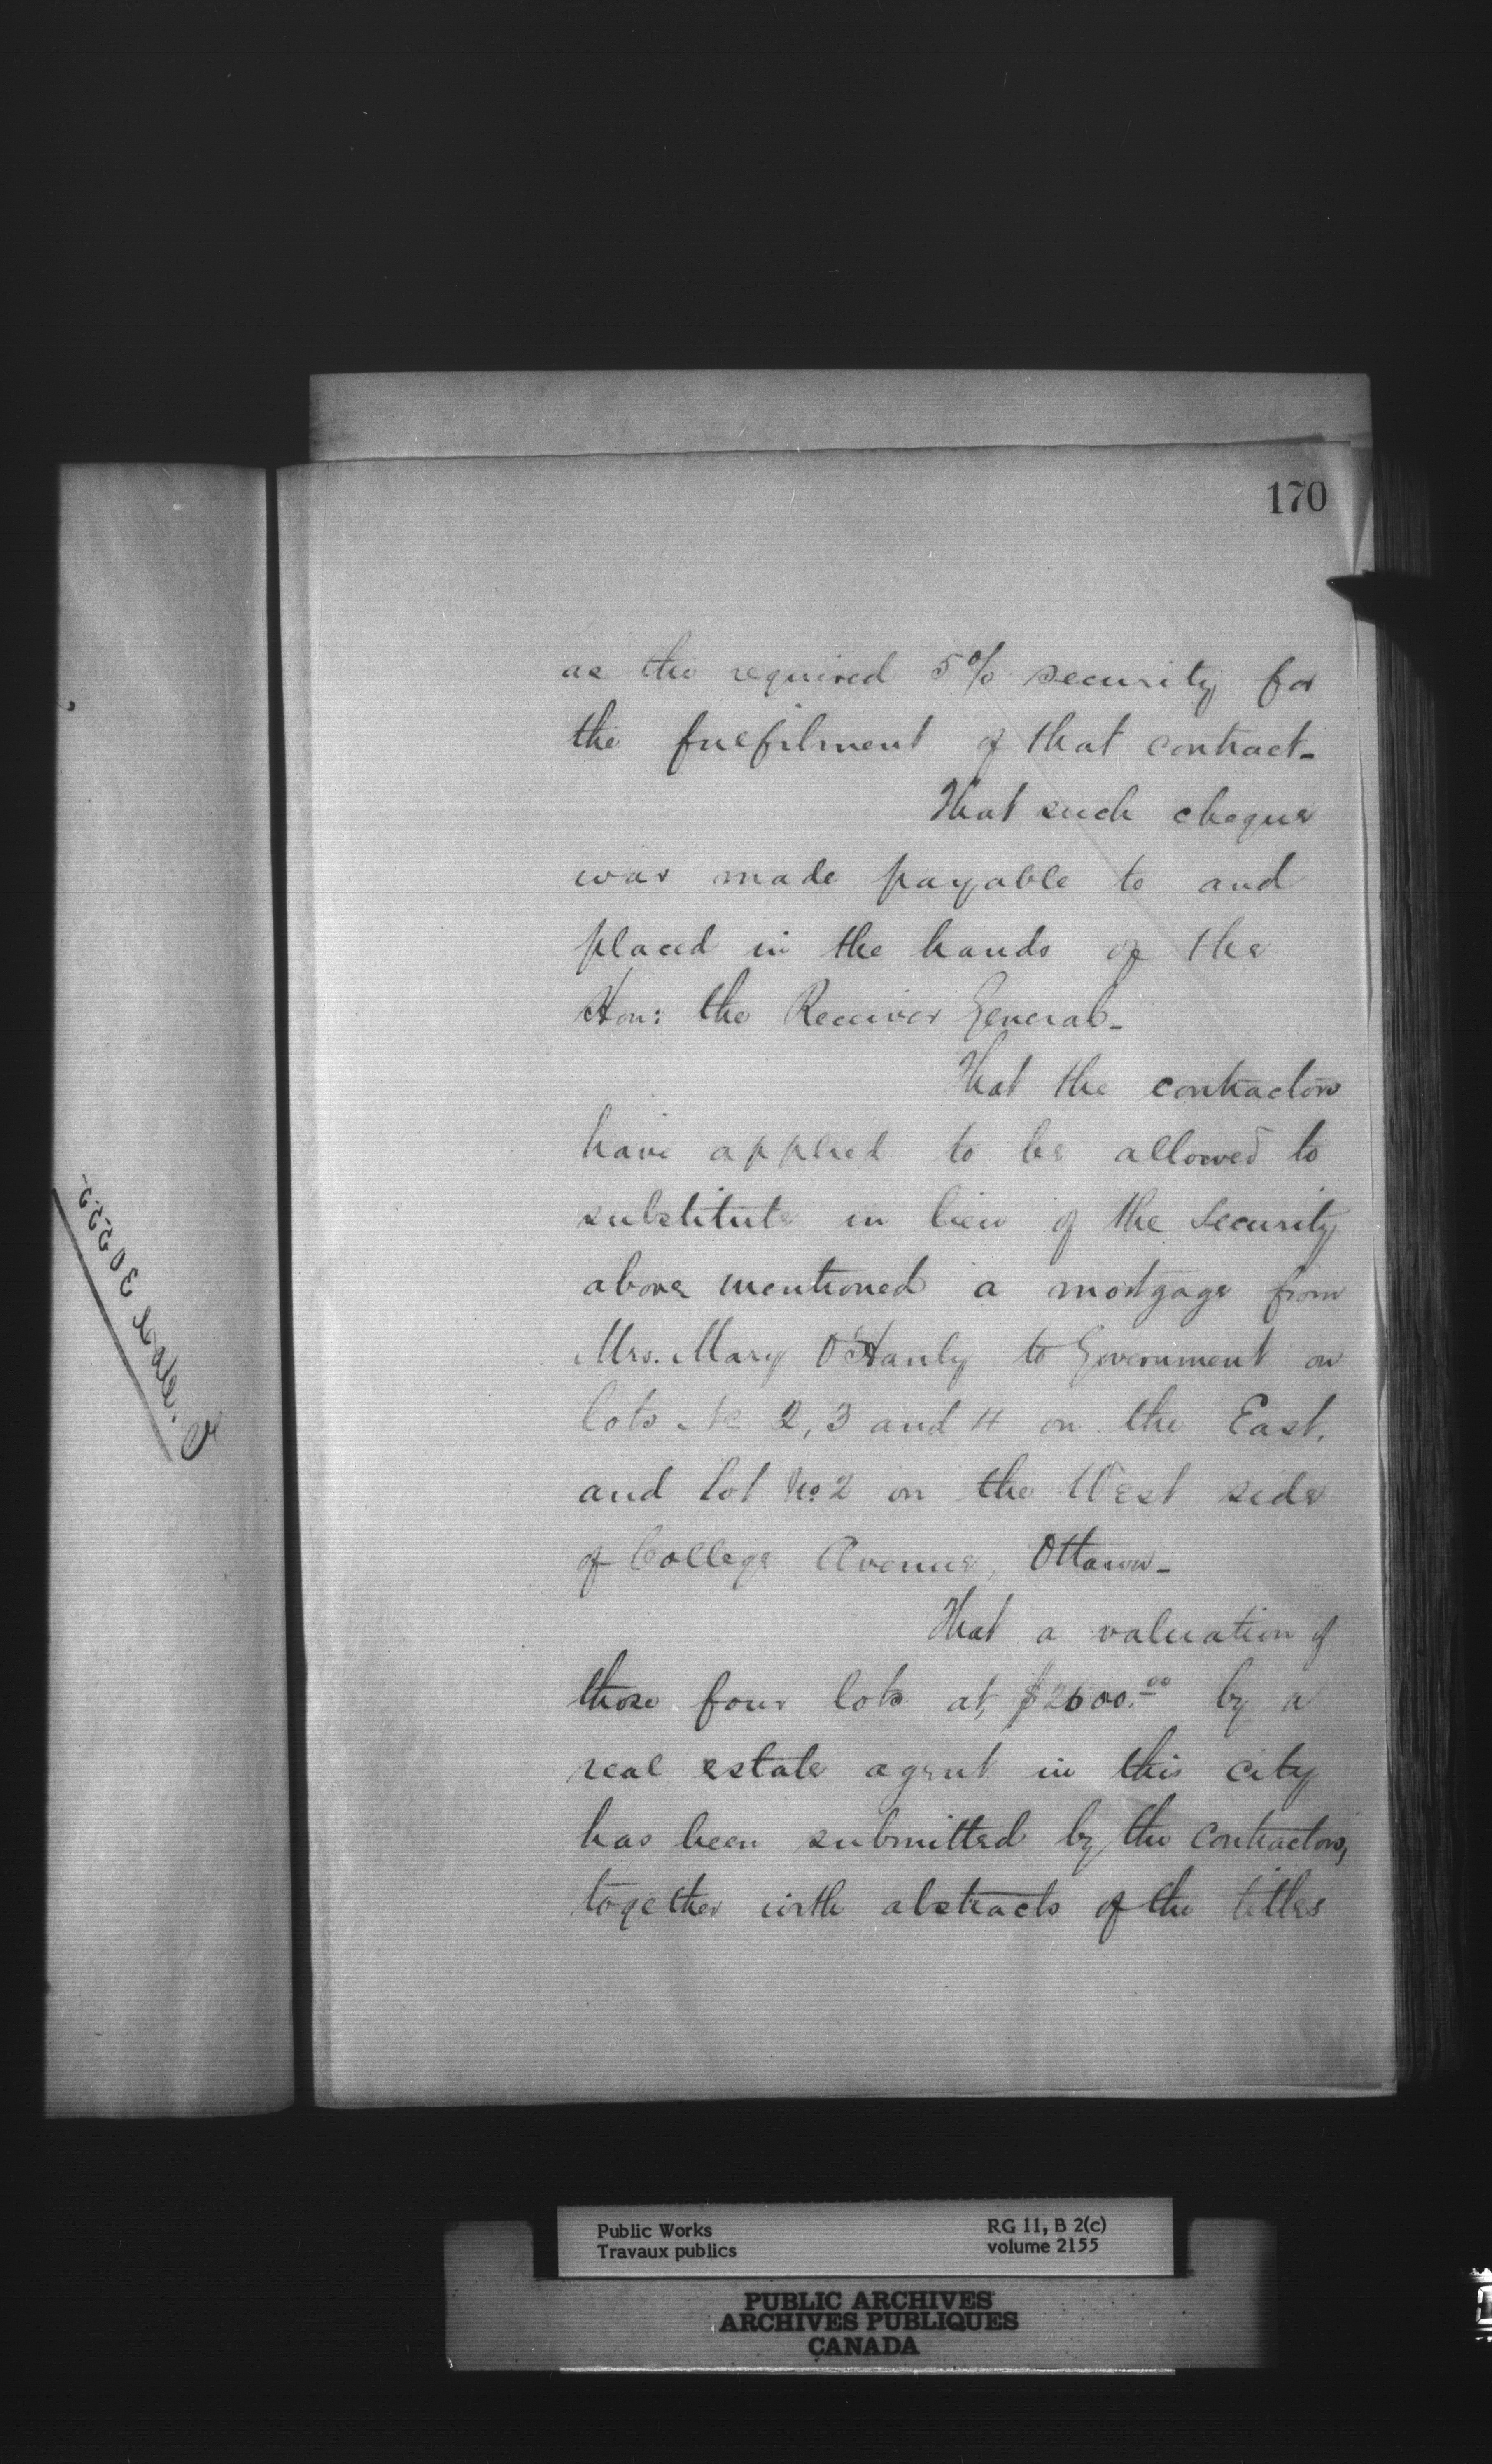 170
as the required 5% security for
the fulfilment of that contract_
That such cheque
was made payable to and
placed in the hands of the
Hon: the Receiver General_
That the contractors
have applied to be allowed to
substitute in lieu of the Security
above mentioned a mortgage from
Mrs. Mary O'Hanly to Government on
lots No 2, 3 and 4 on the East,
and Lot No 2 on the West side
of College Avenue, Ottawa_
That a valuation of
those four lots at $2600.00 by a
real estate agent in this city
has been submitted by the contractors,
together with abstracts of the titles
Public Works
Travaux publics
RG 11, B 2(c)
volume 2155
PUBLIC ARCHIVES
ARCHIVES PUBLIQUES
CANADA